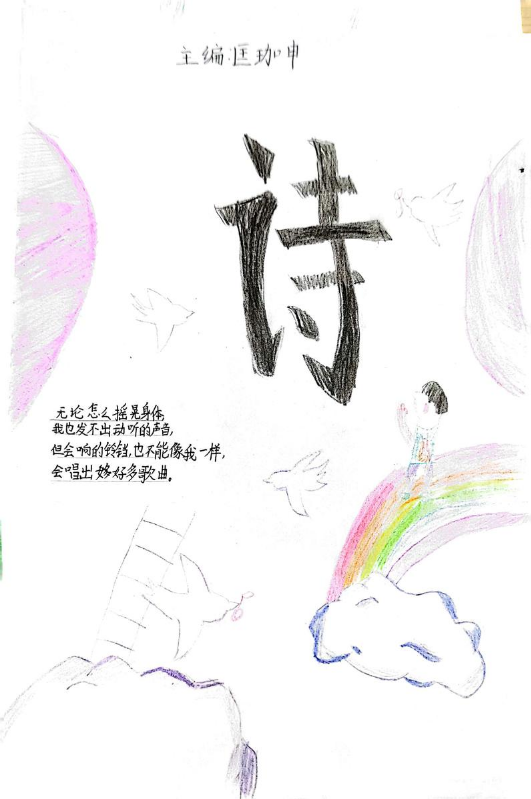 主编:匡珈申
诗
无论怎么摇晃身体,
我也发不出动听的声音,
但会响的铃铛,也不能像我一样,
会唱出好多歌曲。